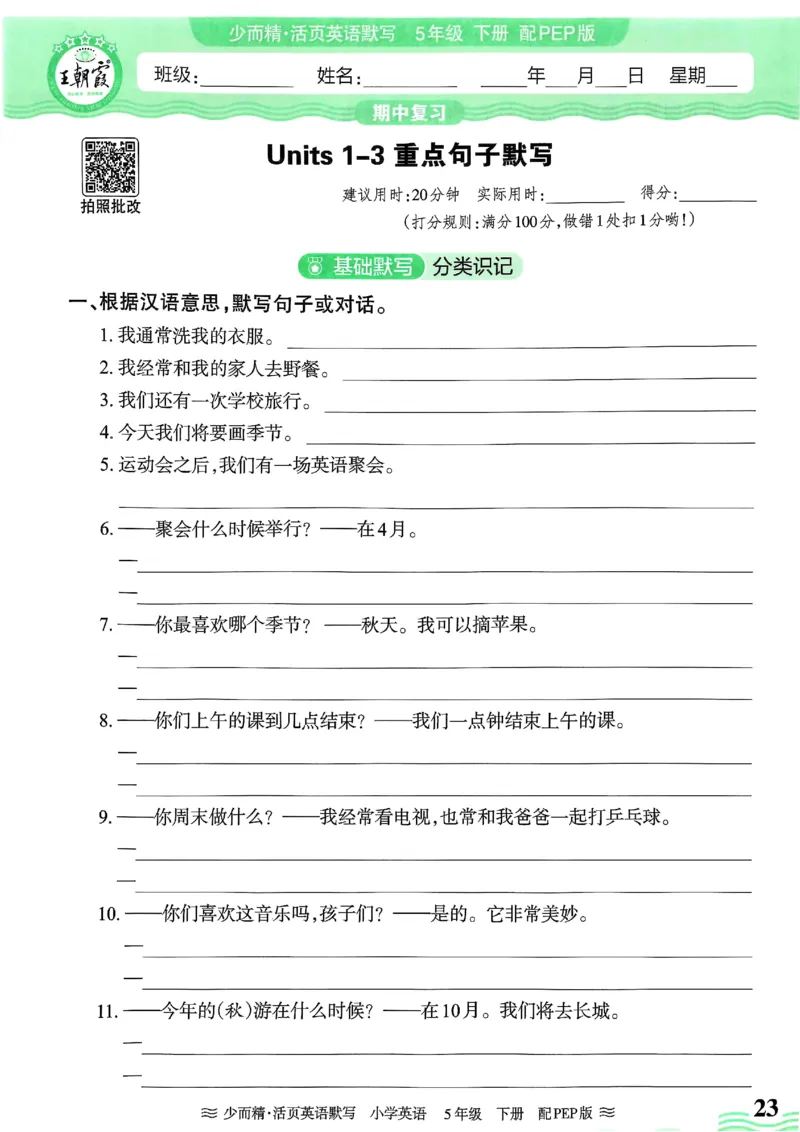 少而精·活页英语默写 5年级 下册 配PEP版
王朝霞
班级: 姓名: 年 月 日 星期
期中复习
Units 1-3 重点句子默写
拍照批改
建议用时:20分钟 实际用时: 得分:
(打分规则:满分100分,做错1处扣1分哟!)
基础默写 分类识记
一、根据汉语意思,默写句子或对话。
1. 我通常洗我的衣服。
2. 我经常和我的家人去野餐。
3. 我们还有一次学校旅行。
4. 今天我们将要画季节。
5. 运动会之后,我们有一场英语聚会。
6. ——聚会什么时候举行? ——在4月。
—
—
7. ——你最喜欢哪个季节? ——秋天。我可以摘苹果。
—
—
8. ——你们上午的课到几点结束? ——我们一点钟结束上午的课。
—
—
9. ——你周末做什么? ——我经常看电视,也常和我爸爸一起打乒乓球。
—
—
10. ——你们喜欢这音乐吗,孩子们? ——是的。它非常美妙。
—
—
11. ——今年的(秋)游在什么时候? ——在10月。我们将去长城。
—
—
少而精·活页英语默写 小学英语 5年级 下册 配PEP版
23